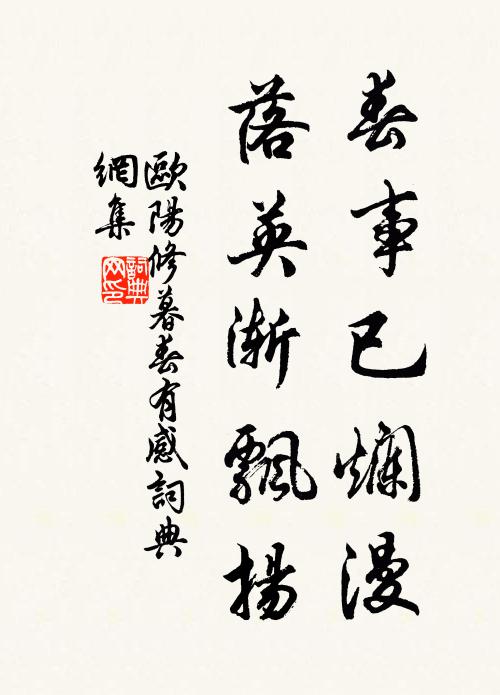 春事已爛漫
落英漸飄揚
歐陽修暮春有感詞典
網集
詞典網印